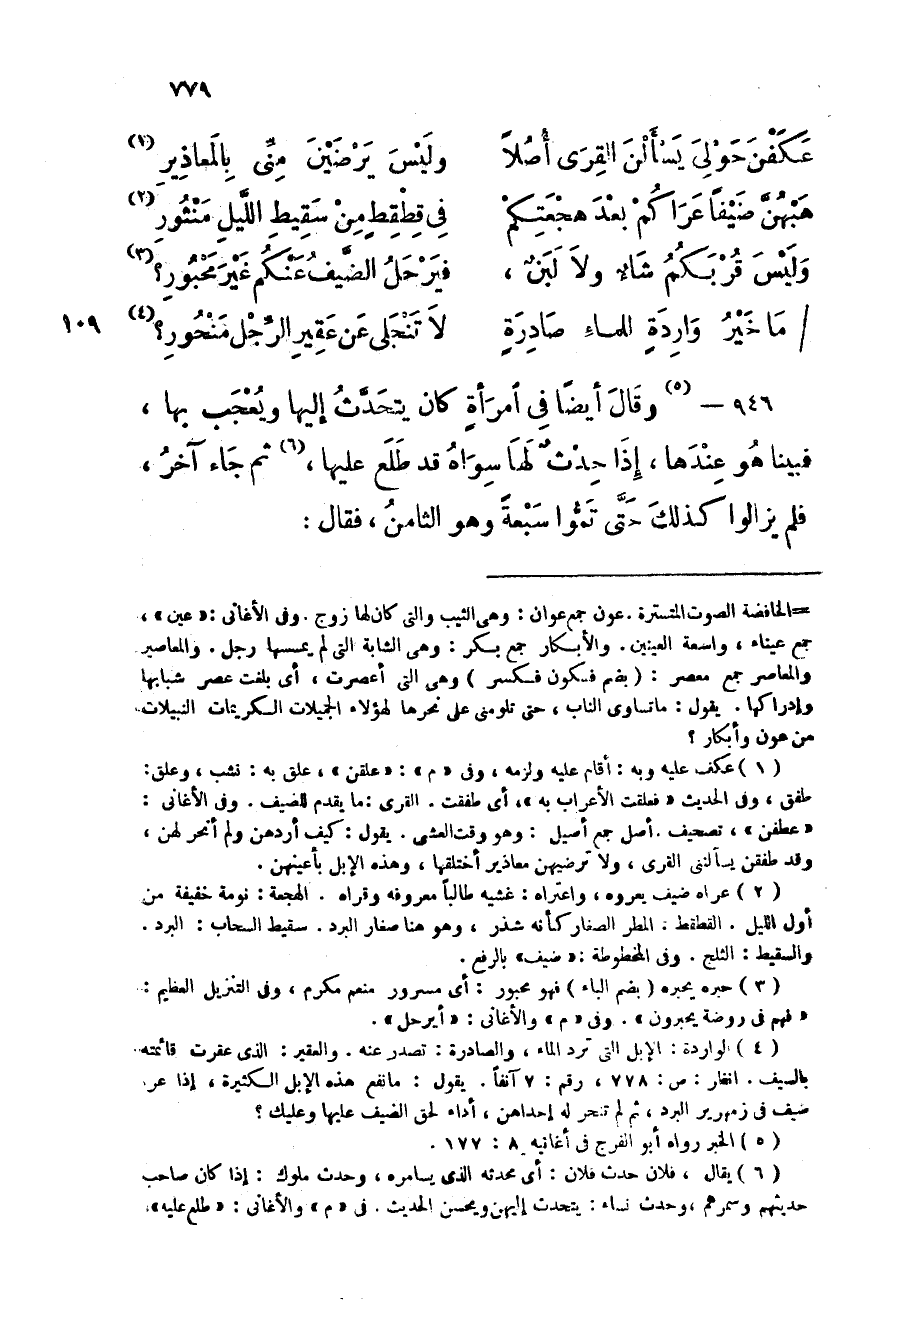 ٧٧٩
عَكَفْنَ حَوْلِىَ يَسْأَلْنَ القِرَى أُصُلاً وَلَيْسَ يَرْضَيْنَ مِنِّى بِالمَعاذِيرِ (١)
هَبْهُنَّ ضَيْفاً عَرَاكُمْ بَعْدَ هجْعَتِكمْ فِى قِطْقِطٍ مِنْ سَقِيطِ اللَّيلِ مَنْثُورِ (٢)
وَلَيْسَ قُرْبَكُمُ شَاءٌ ولاَ لَبَنٌ ، فَيَرْحَلُ الضَّيفُ عَنْكُم غَيْرَ مَحْبُورِ؟ (٣)
/ مَا خَيْرُ وَارِدَةٍ للماء صَادِرَةٍ لاَ تَنْجَلِى عَن عَقِيرِ الرَّجْلِ مَنْحُورِ؟ (٤) ١٠٩
٩٤٦ – (٥) وقَالَ أيضًا فِى أمرَأةٍ كان يتحَدَّثُ إليها ويُعْجَب بها ،
فبينا هُو عِنْدَها ، إذَا حِدْثٌ لَهَا سِوَاهُ قد طَلَع عليها ، (٦) ثم جَاء آخرُ ،
فلم يزالوا كذلكَ حَتَّى تَمُّوا سَبْعةً وهو الثامنُ ، فقال :
=الخافضة الصوت المتسترة . عون جمع عوان : وهى الثيب والتى كان لها زوج . وفى الأغانى : « عين » ،
جمع عيناء ، واسعة العينين . والأبكار جمع بكر : وهى الشابة التى لم يمسسها رجل . والمعاصير
والمعاصر جمع معصر : ( بضم فسكون فكسر ) وهى التى أعصرت ، أى بلغت عصر شبابها
وإدراكها . يقول : ماتساوى الناب ، حتى تلومنى على نحرها لهؤلاء الجميلات الكريمات النبيلات
من عون وأبكار ؟
( ١ ) عكف عليه وبه : أقام عليه ولزمه ، وفى « م » : « علقن » ، علق به : نشب ، وعلق :
طفق ، وفى الحديث « فعلقت الأعراب به » ، أى طفقت . القرى : ما يقدم للضيف . وفى الأغانى :
« عطفن » ، تصحيف . أصل جمع أصيل : وهو وقت العشى . يقول : كيف أردهن ولم أنحر لهن ،
وقد طفقن يسألننى القرى ، ولا ترضيهن معاذير أختلقها ، وهذه الإبل بأعينهن .
( ٢ ) عراه ضيف يعروه ، واعتراه : غشيه طالباً معروفه وقراه . الهجعة : نومة خفيفة من
أول الليل . القطقط : المطر الصغار كأنه شذر ، وهو هنا صغار البرد . سقيط السحاب : البرد .
والسقيط : الثلج . وفى المخطوطة : « ضيف » بالرفع .
( ٣ ) حبره يحبره ( بضم الباء ) فهو محبور : أى مسرور منعم مكرم ، وفى التنزيل العظيم :
« فهم فى روضة يحبرون » . وفى « م » والأغانى : « أيرحل » .
( ٤ ) الواردة : الإبل التى ترد الماء ، والصادرة : تصدر عنه . والعقير : الذى عقرت قائمته
بالسيف . انظر : ص : ٧٧٨ ، رقم : ٧ آنفاً . يقول : مانفع هذه الإبل الكثيرة ، إذا عر،
ضيف فى زمهرير البرد ، ثم لم تنحر له إحداهن ، أداء لحق الضيف عليها وعليك ؟
( ٥ ) الخبر رواه أبو الفرج فى أغانيه ٨ : ١٧٧ .
( ٦ ) يقال ، فلان حدث فلان : أى محدثه الذى يسامره ، وحدث ملوك : إذا كان صاحب
حديثهم وسمرهم ، وحدث نساء : يتحدث إليهن ويحسن الحديث . فى « م » والأغانى : « طلع عليه » .